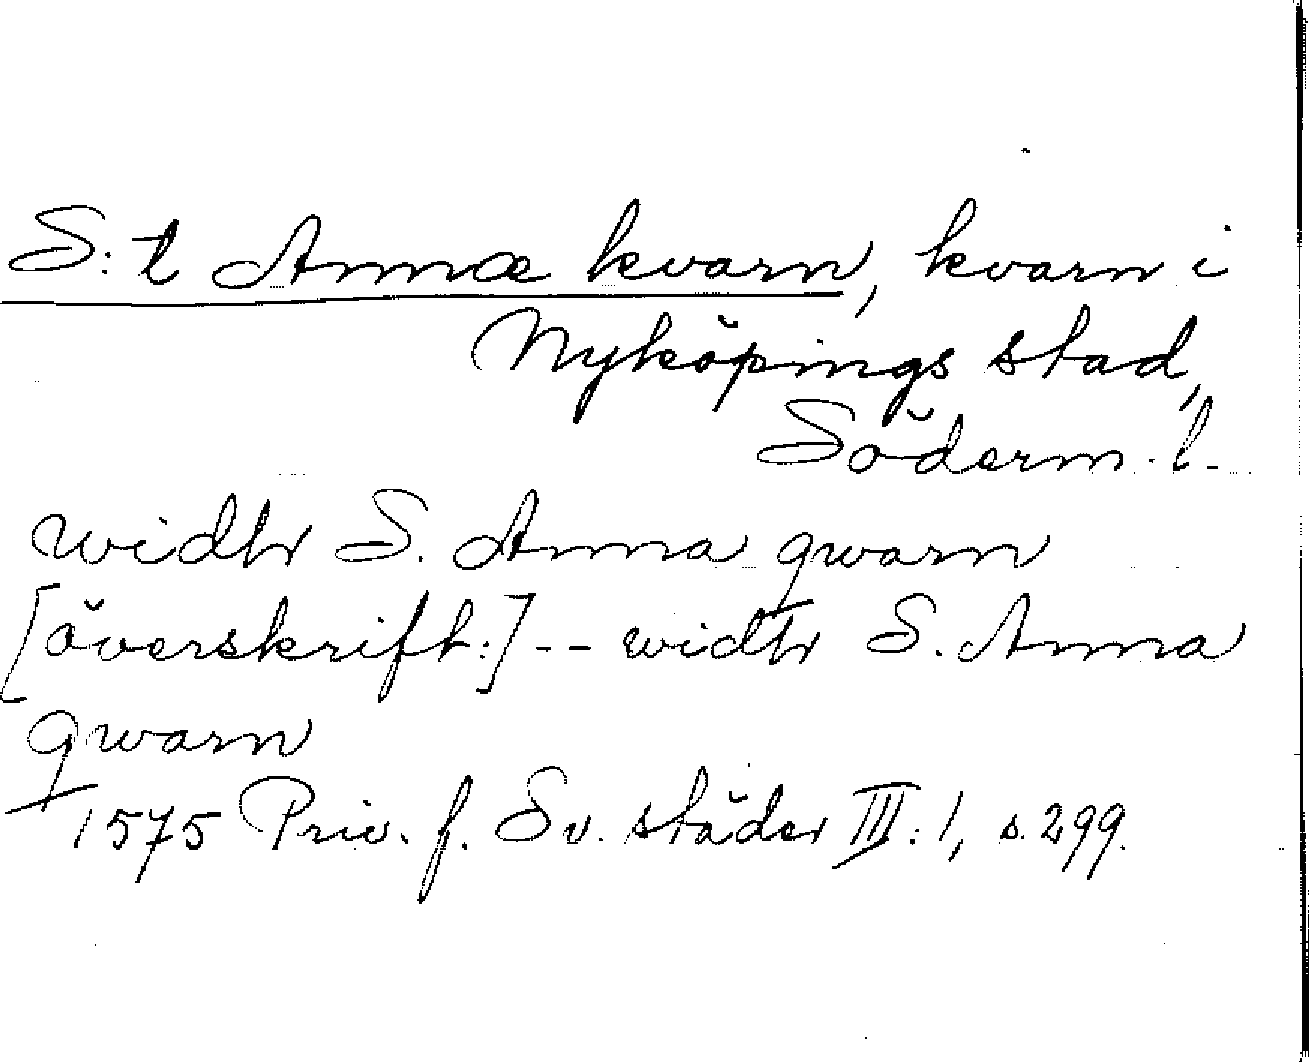 S:t Annæ kvarn, kvarn i
Nyköpings stad,
Söderm. l.
widhr S. Anna qwarn
[överskrift:] -- widhr S. Anna
qwarn
1575 Priv. f. Sv. städer III:1, s. 299.